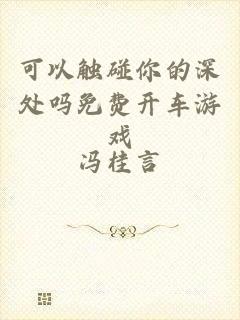 可以触碰你的深
处吗免费开车游
戏
冯桂言